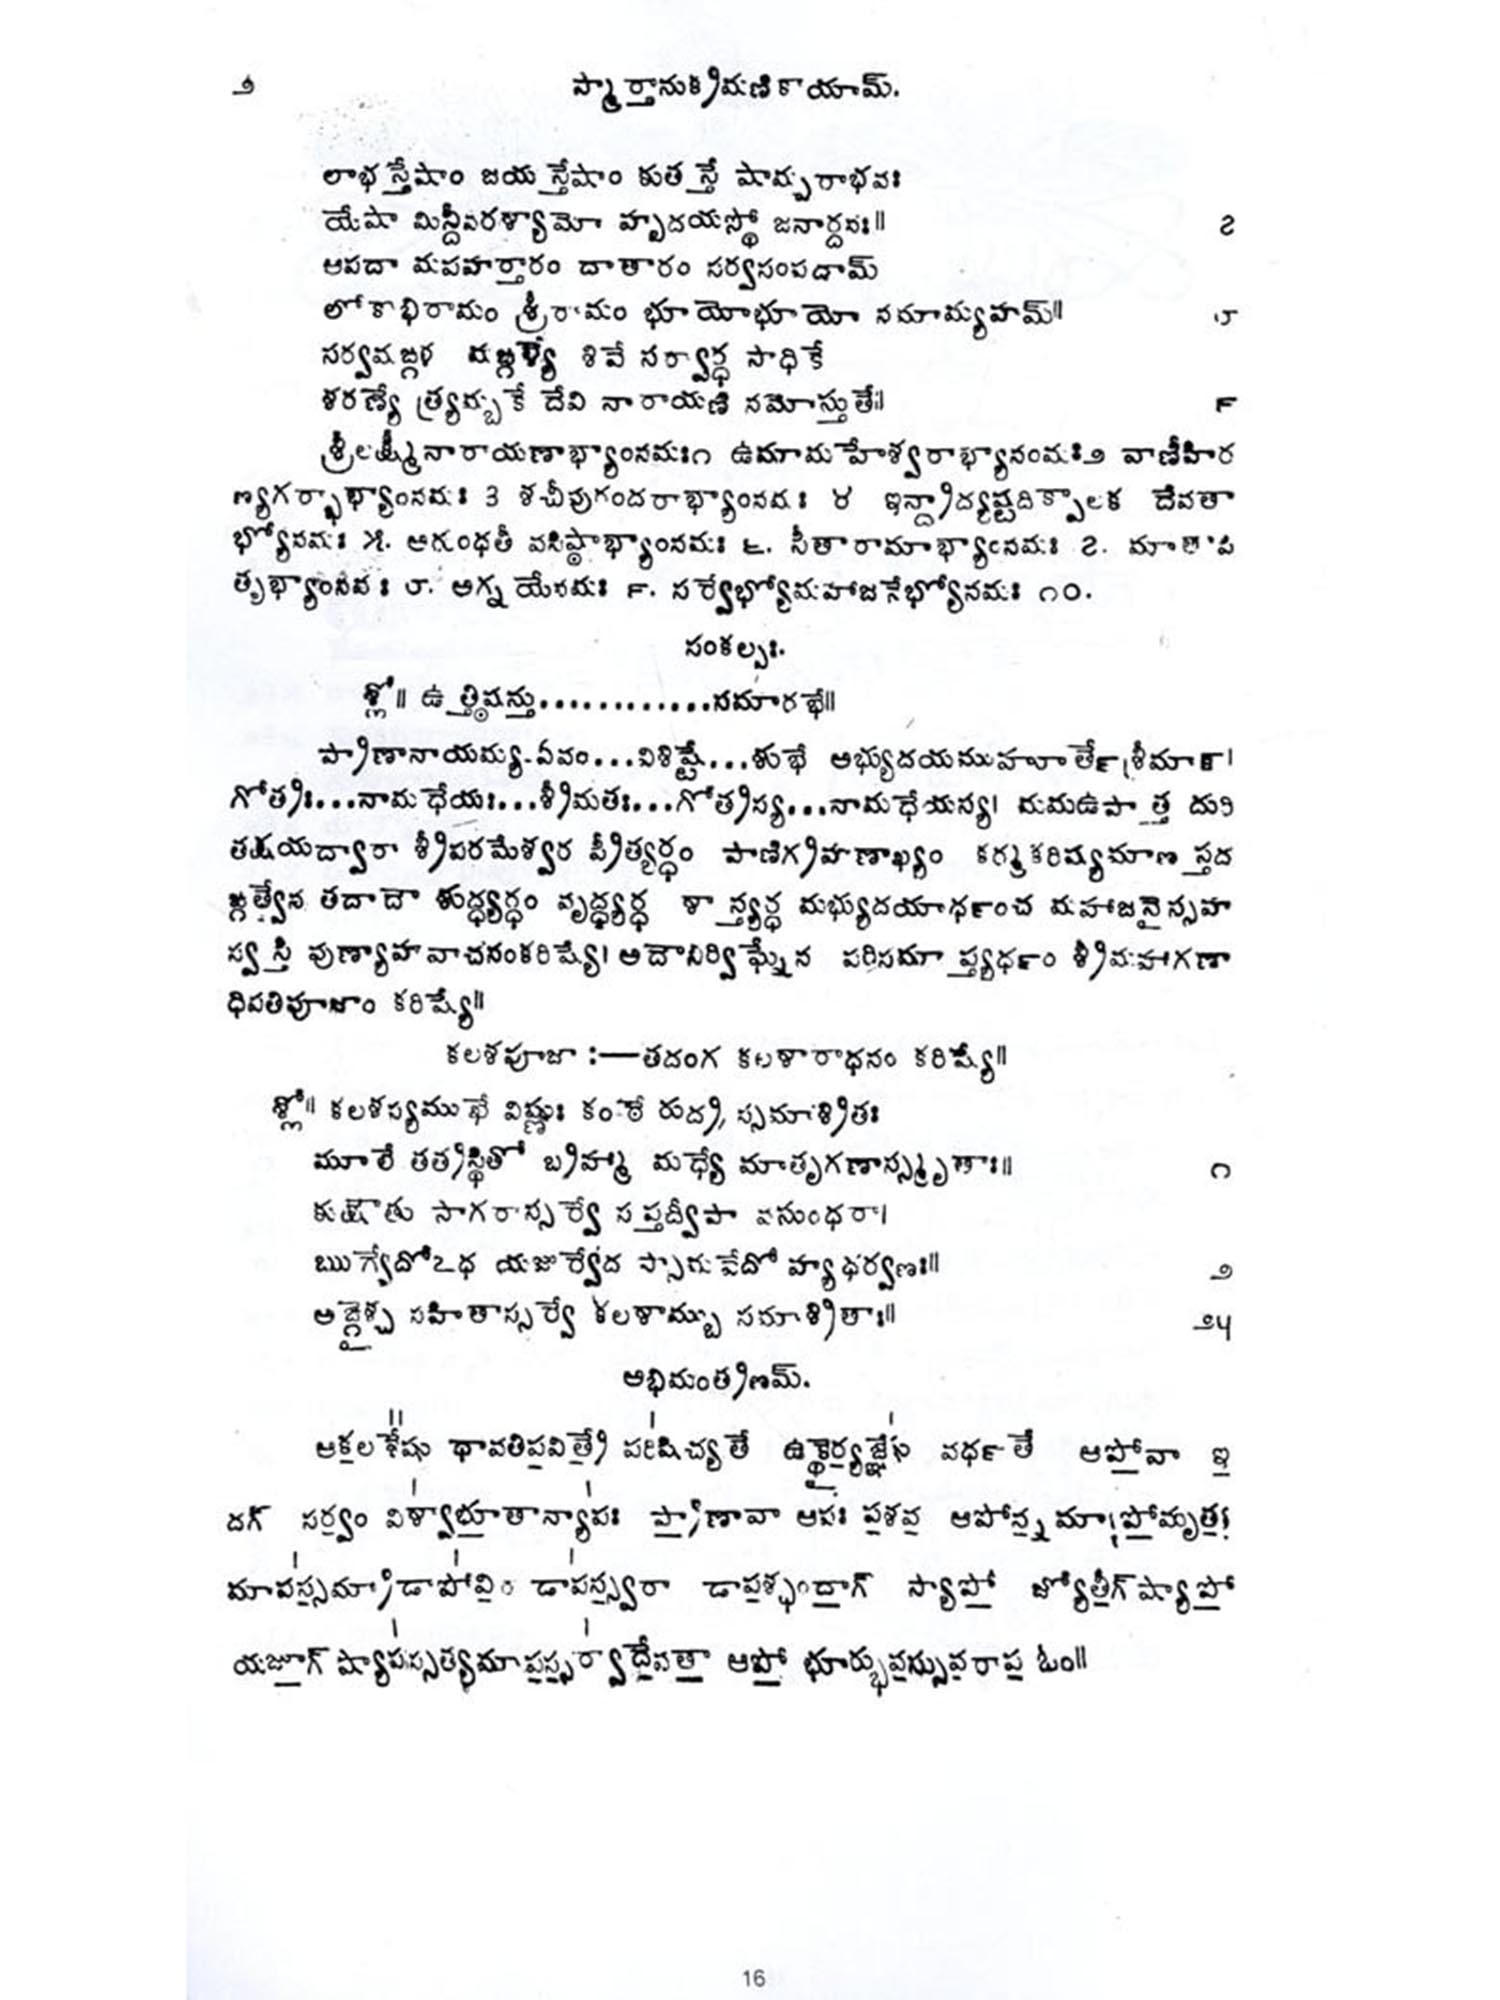 ౨ స్మార్తానుక్రమణికాయామ్.
లాభస్తేషాం జయస్తేషాం కుతస్తే షామ్పరాభవః
యేషా మిన్దీవరశ్యామో హృదయస్థో జనార్దనః॥ ౭
ఆపదా మపహర్తారం దాతారం సర్వసంపదామ్
లోకాభిరామం శ్రీరామం భూయోభూయో నమామ్యహమ్॥ ౮
సర్వమఙ్గళ మఙ్గళ్యే శివే సర్వార్ధ సాధికే
శరణ్యే త్ర్యమ్బకే దేవి నారాయణి నమోస్తుతే॥ ౯
శ్రీలక్ష్మీనారాయణాభ్యాంనమః౧ ఉమామహేశ్వరాభ్యానంమః౨ వాణీహిర
ణ్యగర్భాభ్యాంనమః ౩ శచీపుగందరాభ్యాంనమః ౪ ఇన్ద్రాద్యష్టదిక్పాలక దేవతా
భ్యోనమః ౫. ఆరుంధతీ వసిష్ఠాభ్యాంనమః ౬. సీతారామాభ్యాంనమః ౭. మాతాపి
తృభ్యాంనమః ౮. అగ్నయేనమః ౯. సర్వేభ్యోమహాజనేభ్యోనమః ౧౦.
సంకల్పః.
శ్లో॥ ఉత్తిష్ఠన్తు............సమారభే॥
ప్రాణానాయమ్య-ఏవం...విశిష్టే...శుభే అభ్యుదయముహూర్తే శ్రీమాన్।
గోత్రః...నామధేయః...శ్రీమతః...గోత్రస్య...నామధేయస్య। మమఉపాత్త దురి
తక్షయద్వారా శ్రీపరమేశ్వర ప్రీత్యర్ధం పాణిగ్రహణాఖ్యం కర్మకరిష్యమాణ స్తద
ఙ్గత్వేన తదాదౌ శుద్ధ్యర్ధం వృద్ధ్యర్ధ శాన్త్యర్ధ మభ్యుదయార్ధంచ మహాజనైస్సహ
స్వస్తి పుణ్యాహవాచనంకరిష్యే। అదౌనిర్విఘ్నేన పరిసమాప్త్యర్ధం శ్రీమహాగణా
ధిపతిపూజాం కరిష్యే॥
కలశపూజా :—తదంగ కలశారాధనం కరిష్యే॥
శ్లో॥ కలశస్యముఖే విష్ణుః కంఠే రుద్ర స్సమాశ్రితః
మూలే తత్రస్థితో బ్రహ్మా మధ్యే మాతృగణాస్స్మృతాః॥ ౧
కుక్షౌతు సాగరాస్సర్వే సప్తద్వీపా వసుంధరా।
ఋగ్వేదోఽధ యజుర్వేద స్సామవేదో హ్యధర్వణః॥ ౨
అఙ్గైశ్చ సహితాస్సర్వే కలశామ్బు సమాశ్రితాః॥ ౨౺
అభిమంత్రణమ్.
ఆకలశేషు ధావతిపవిత్రే పరిషిచ్యతే ఉక్థైర్యజ్ఞేషు వర్ధతే ఆపోవా ఇ
దగ్ సర్వం విశ్వాభూతాన్యాపః ప్రాణావా ఆపః పశవ ఆపోన్న మాపోమృత
మాపస్సమ్రాడాపోవిరాడాపస్స్వరా డాపశ్ఛందాగ్ స్యాపో జ్యోతీగ్‌ష్యాపో
యజూగ్‌ష్యాపస్సత్యమాపస్సర్వాదేవతా ఆపో భూర్భువస్సువరాప ఓం॥
16